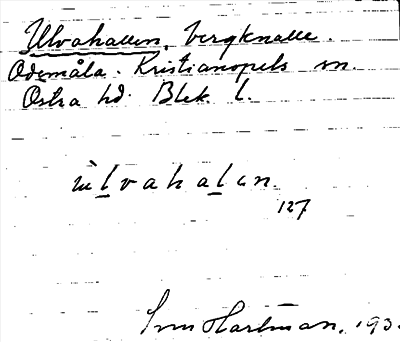 Ulvahallen, bergknalle.
Ödemåla. Kristianopels sn.
Östra hd. Blek. l.
ùlvahalen.
127
Hartman, 193